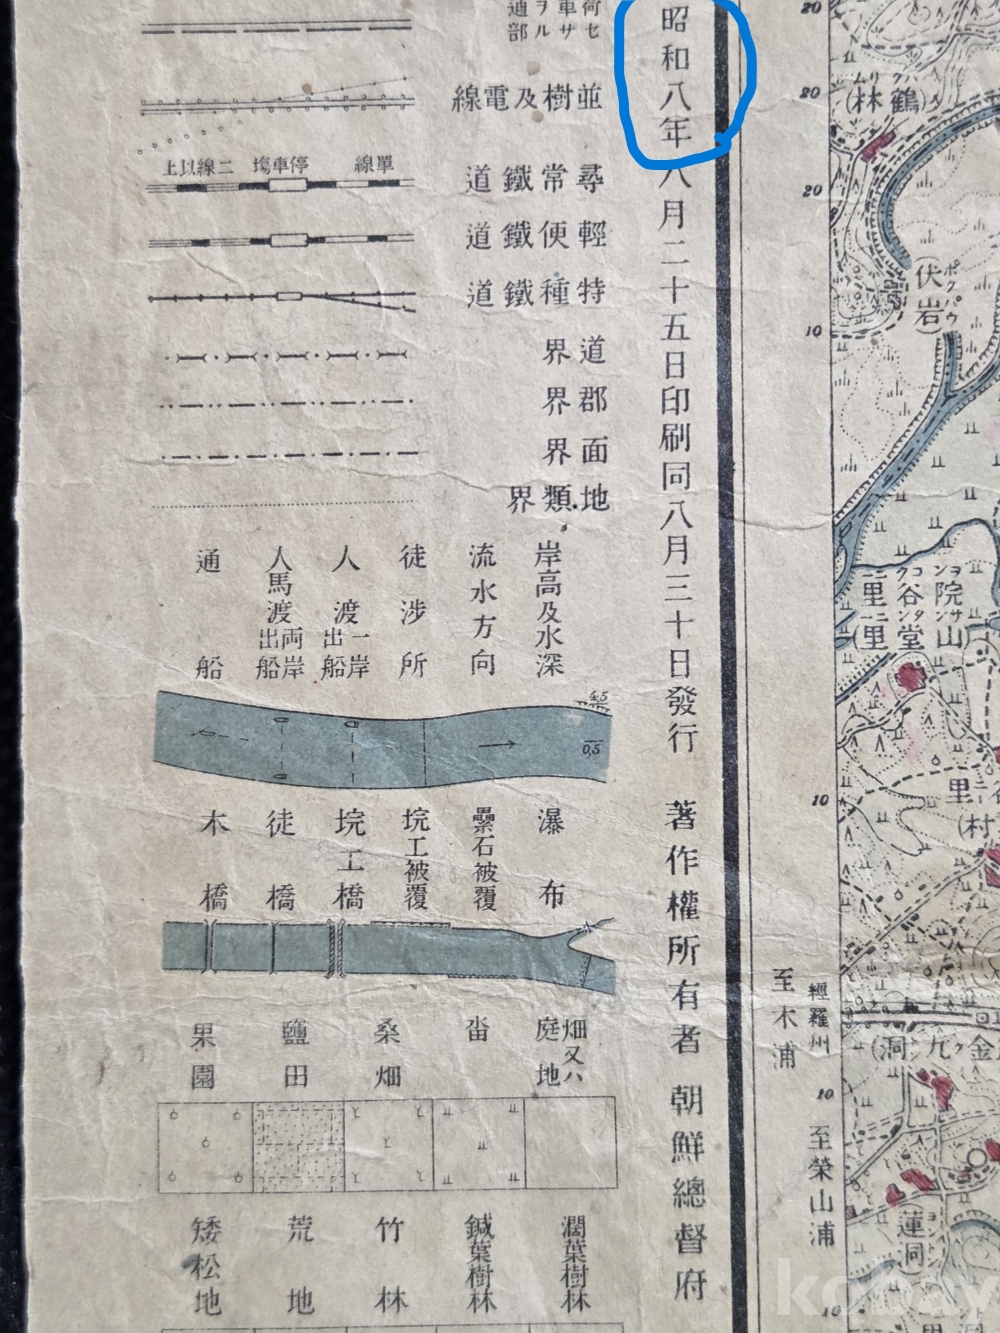 昭和八年八月二十五日印刷同八月三十日發行
著作權所有者 朝鮮總督府
荷車ヲ通
セサル部
並樹及電線
尋常鐵道
單線
停車塲
二線以上
輕便鐵道
特種鐵道
道界
郡界
面界
地類界
岸高及水深
流水方向
徒涉所
人渡
一岸出船
人馬渡
両岸出船
通船
4.5
0,5
瀑布
疊石被覆
垸工被覆
垸工橋
徒橋
木橋
畑又ハ庭地
畓
桑畑
鹽田
果園
濶葉樹林
鍼葉樹林
竹林
荒地
矮松地
20
20
20
10
10
10
10
鶴林
伏岩
ポクパウ
院山
谷堂
里里
里
村
經羅州
至木浦
至榮山浦
金
九
洞
蓮洞
kobay